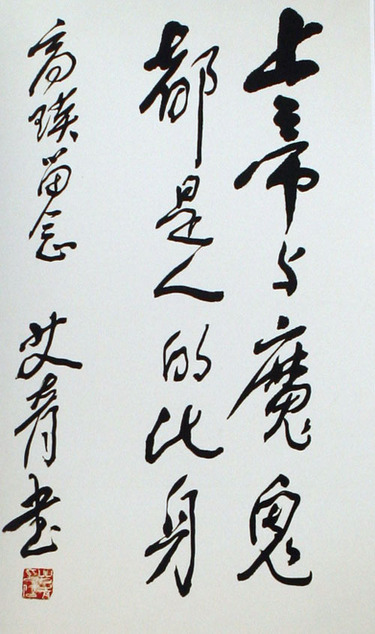 上帝与魔鬼
都是人的化身
高瑛留念 艾青书